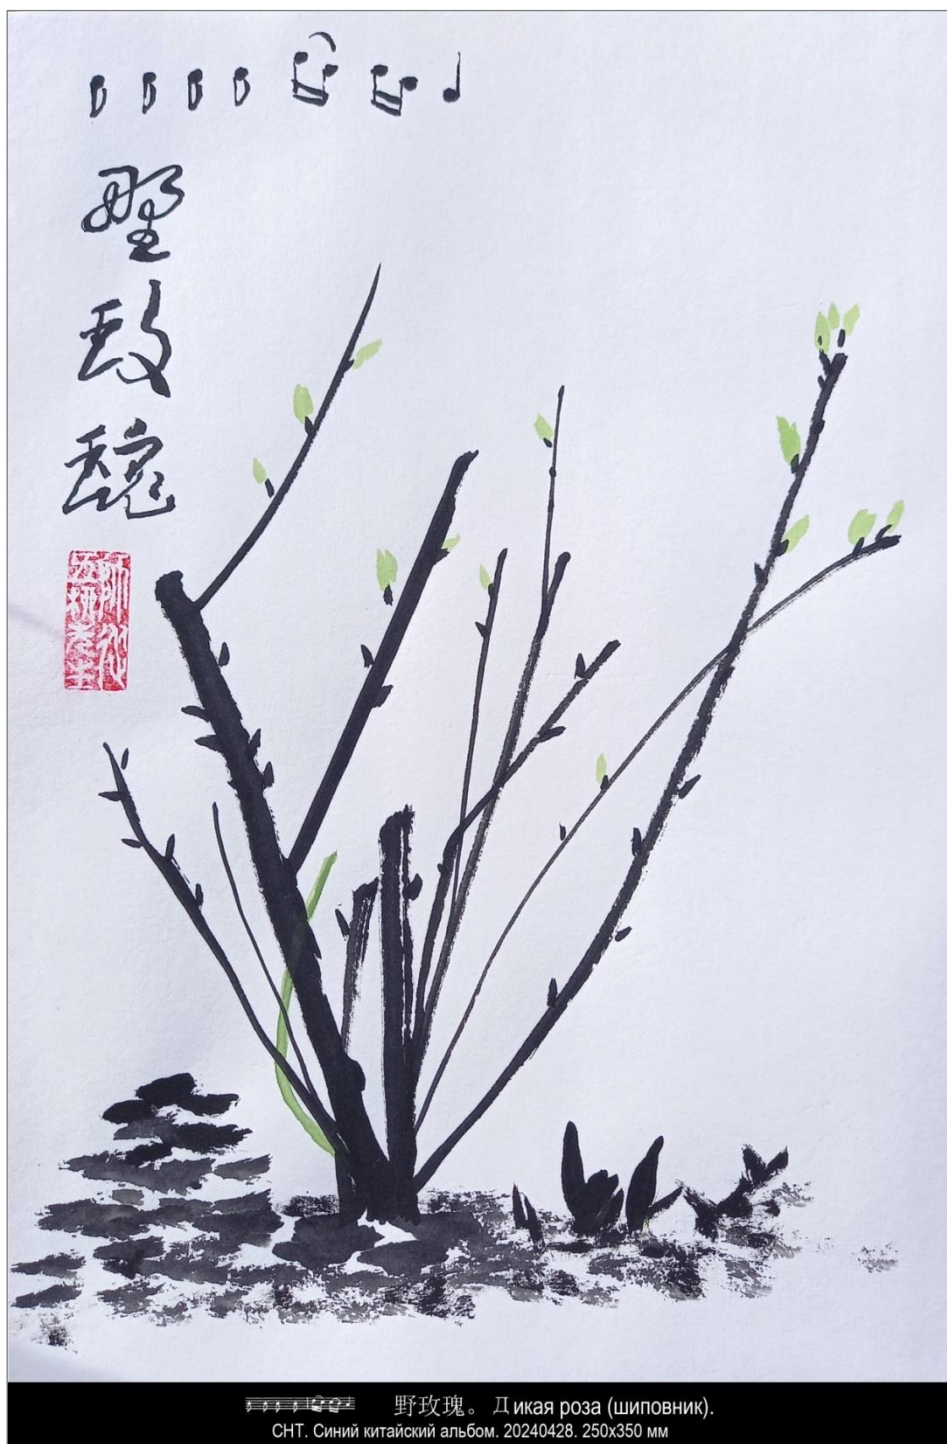 野
玫
瑰
野玫瑰。Дикая роза (шиповник).
СНТ. Синий китайский альбом. 20240428. 250x350 мм